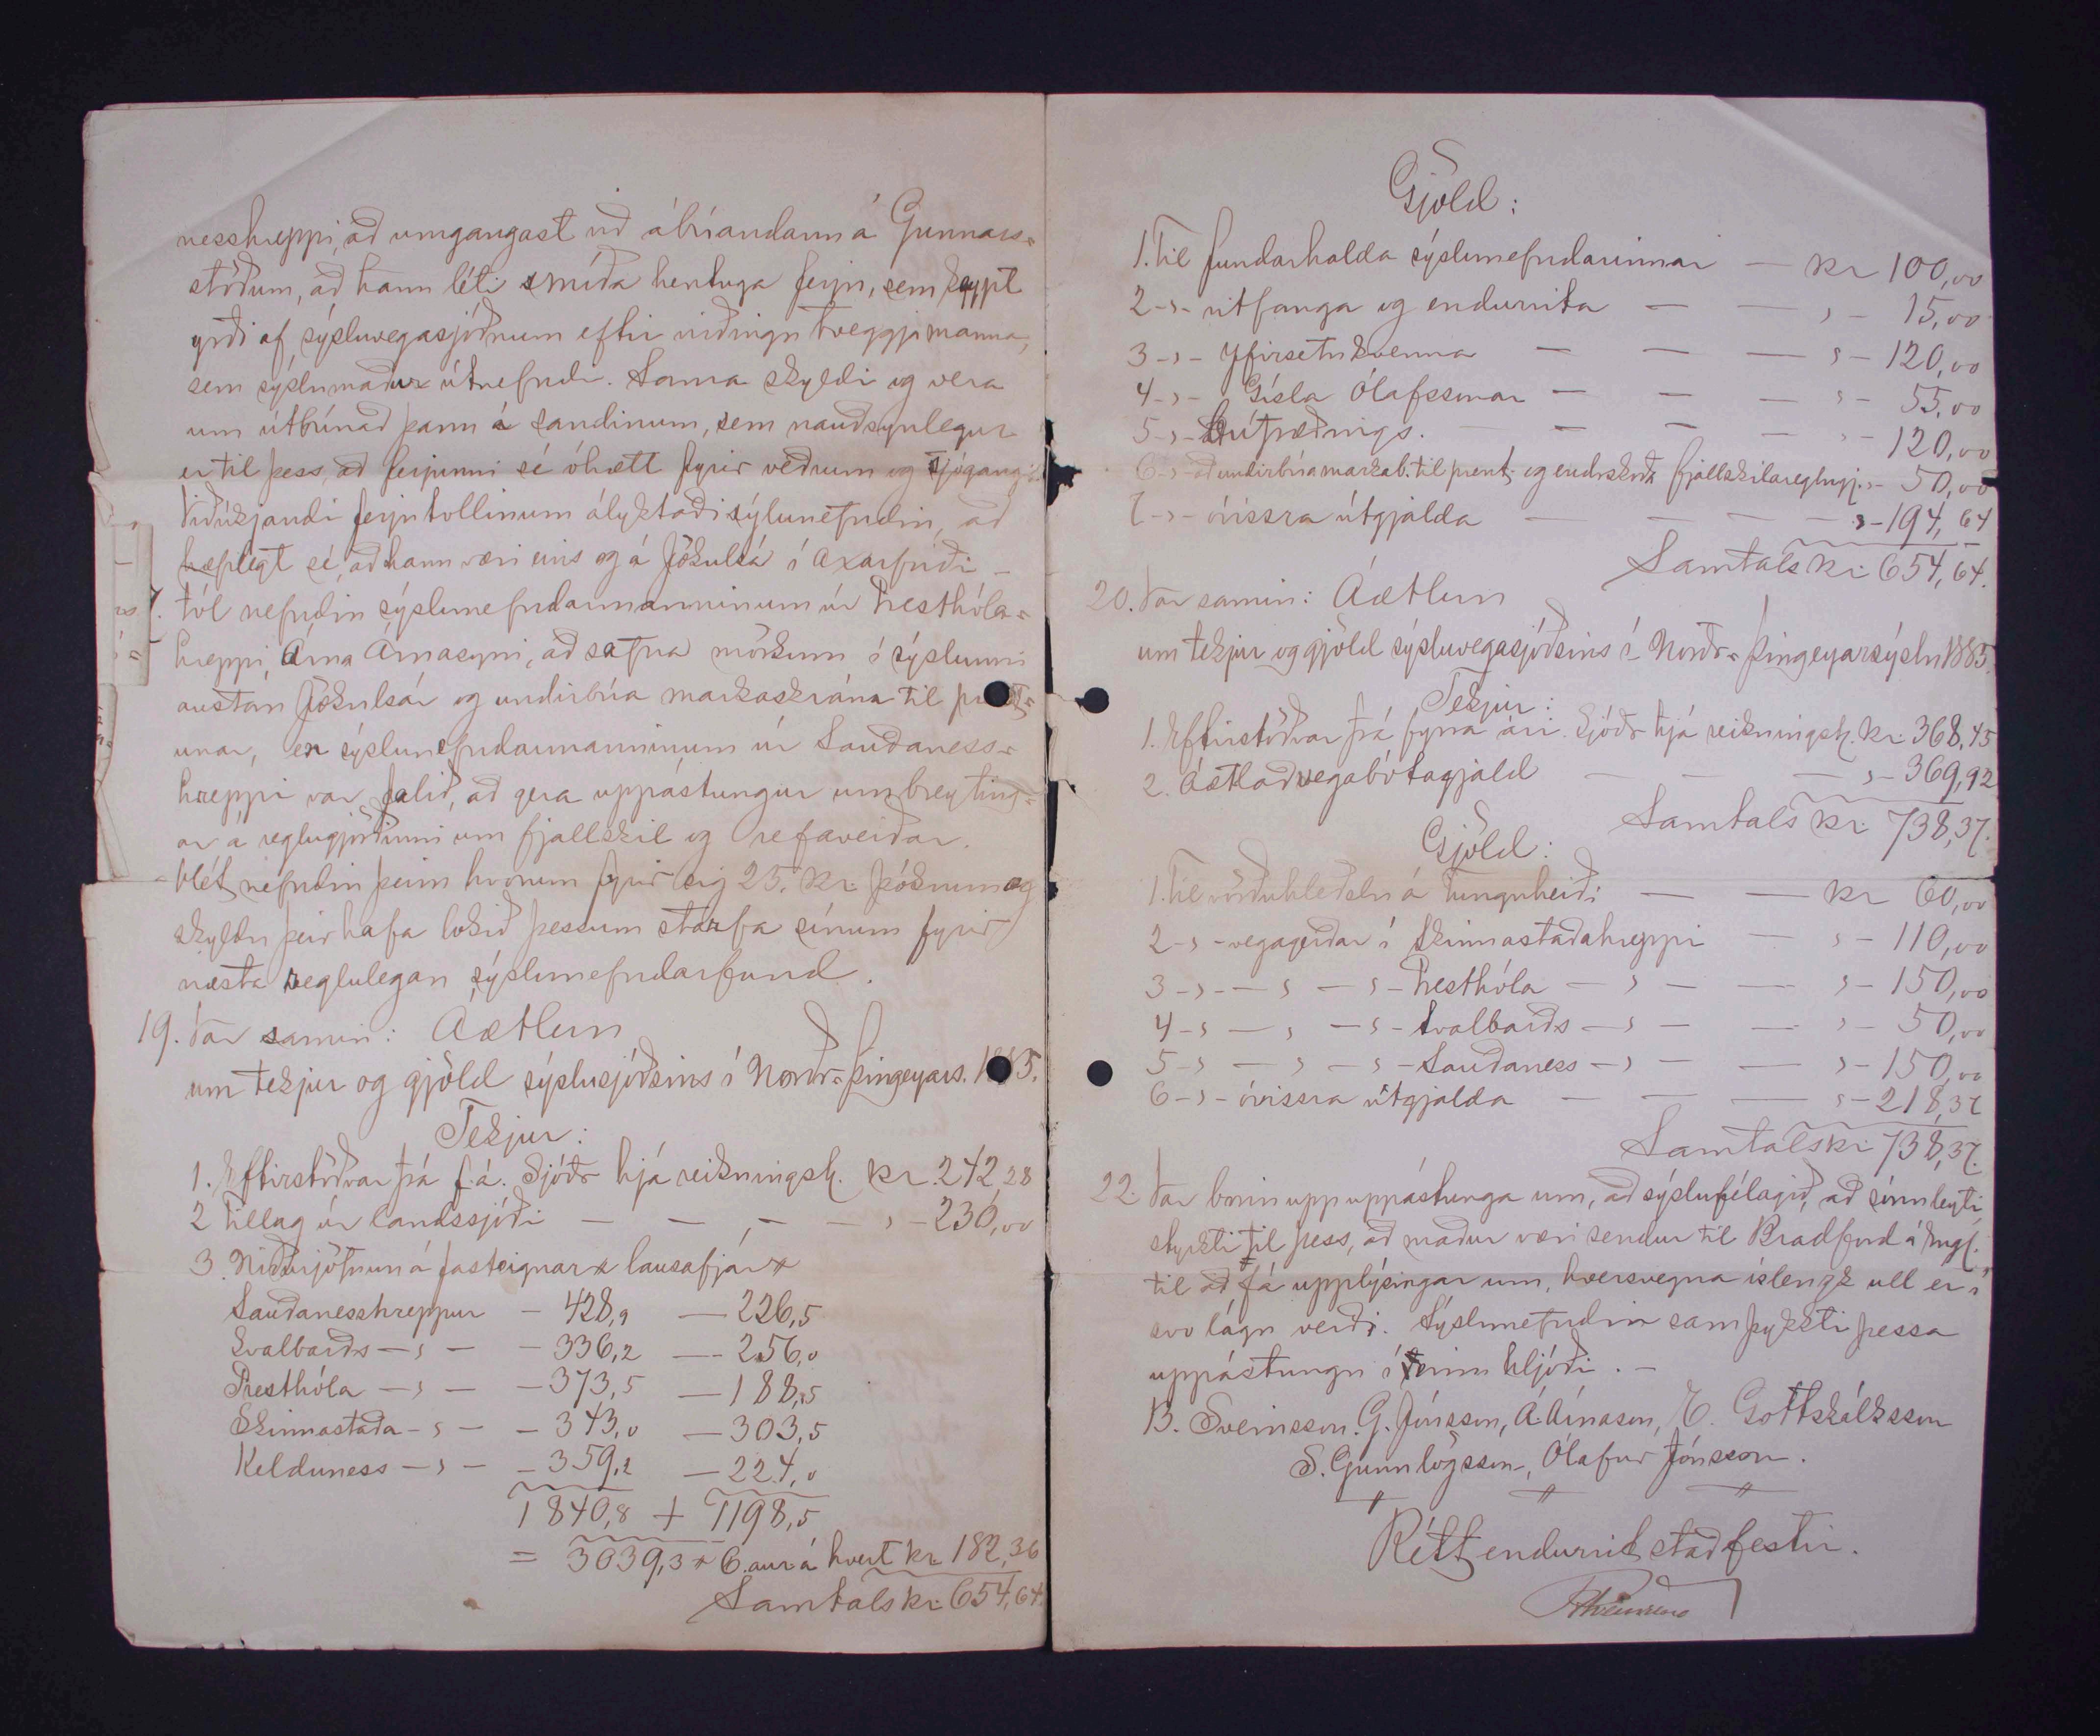 nesshreppi, að umgangast við ábúandann á Gunnars-
stöðum, að hann léti smíða hentuga ferju, sem keypt
yrði af sýsluvegasjóðnum eftir virðingu tveggja manna,
sem sýslumaður útnefndi. Sama skyldi og vera
um útbúnað þann á sandinum, sem nauðsynlegur
er til þess, að ferjunni sé óhætt fyrir veðrum og sjógangi
Viðvíkjandi ferjutollinum ályktaði sýlunefndin, að
hæfilegt sé, að hann væri eins og á Jökulsá í Axarfirði –
fól nefndin sýslunefndarmanninum úr Presthóla-
hreppi, Árna Árnasyni, að safna mörkum í sýslunni
austan Jökulsár og undirbúa markaskrána til prent-
unar, en sýslunefndarmanninum úr Sauðaness-
hreppi var falið, að gera uppástungur um breyting-
ar á reglugjörðinni um fjallskil og refaveiðar.
Hét nefndin þeim hvorum fyrir sig 25. kr. þóknun og
skyldu þeir hafa lokið þessum starfa sínum fyrir
næsta reglulegan sýslunefndarfund.
19. Var samin: Áætlun
um tekjur og gjöld sýslusjóðsins í Norðr-Þingeyars. 1885.
Tekjur:
1. Eftirstöðvar frá f.á. Sjóðr hjá reikningsh. kr. 242,28
2 Tillag úr landssjóði — — — — „ - 230,00
3. Niðurjöfnun á fasteignar x lausafjár x
Sauðanesshreppur - 428,9 — 226,5
Svalbarðs — „ — - 336,2 — 256,0
Presthóla — „ — - 373,5 — 188,5
Skinnastaða - „ — - 343,0 — 303,5
Kelduness — „ — - 359,2 — 224,0
1840,8 + 1198,5
= 3039,3 x 6. aur. á hvert kr. 182,36
Samtals kr. 654,64.
Gjöld:
1. Til fundarhalda sýslunefndarinnar — kr 100,00
2 - „ - ritfanga og endurrita — — „ - 15,00
3 - „ - Yfirsetukvenna — — — „ - 120,00
4 - „ - Gísla Ólafssonar — — — „ - 55,00
5 - „ - Búfræðings. — — — — „ - 120,00
6 - „ - að undirbúa markab. til prent. og endrskoða fjallskilareglugj. „ - 50,00
7 - „ - óvissra útgjalda — — — „ - 194,64
Samtals kr. 654,64.
20. Var samin: Áætlun
um tekjur og gjöld sýsluvegasjóðsins í Norðr-Þingeyarsýslu 1885.
Tekjur:
1. Eftirstöðvar frá fyrra ári. Sjóðr hjá reikningsh. kr. 368,45
2. Áætlað vegabótagjald — — — „ - 369,92
Samtals kr. 738,37.
Gjöld:
1. Til vörðuhleðslu á Tunguheiði — — kr 60,00
2 - „ - vegagerðar í Skinnastaðahreppi — „ - 110,00
3 - „ - — „ — „ - Presthóla — „ — — „ - 150,00
4 - „ — „ — „ - Svalbarðs — „ — — „ - 50,00
5 - „ — „ — „ - Sauðaness — „ — — „ - 150,00
6 - „ - óvissra útgjalda — — — „ - 218,37
Samtals kr. 738,37.
22. Var borin upp uppástunga um, að sýslufélagið, að sínu leyti,
styrkti til þess, að maður væri sendur til Bradford á Engl.
til að fá upplýsingar um, hversvegna íslenzk ull er í
svo lágu verði. Sýslunefndin samþykkti þessa
uppástungu í einu hljóði. –
B. Sveinsson. G. Jónsson, Á. Árnason, E. Gottskálksson
S. Gunnlögsson, Ólafur Jónsson.
Rétt endurrit staðfestir.